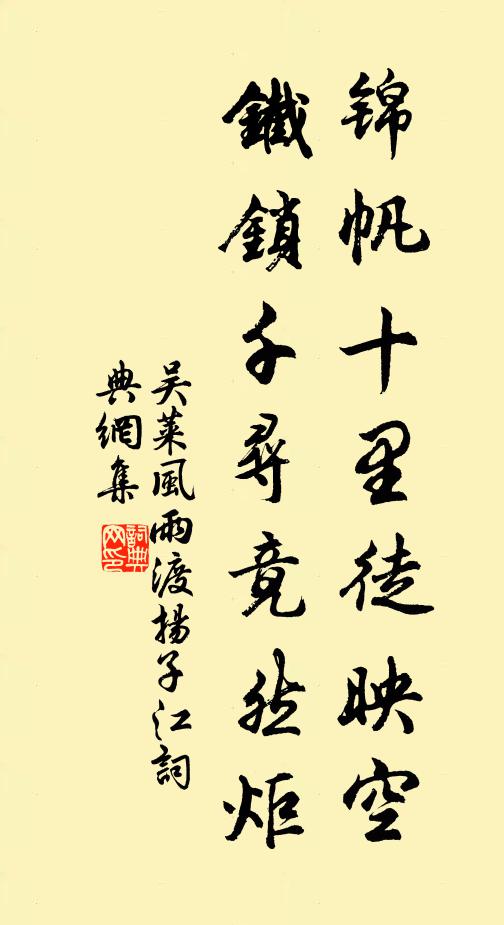 锦帆十里徒映空
鐵鎖千尋竟然炬
吴萊風雨渡揚子江詞
典網集
詞典
网印